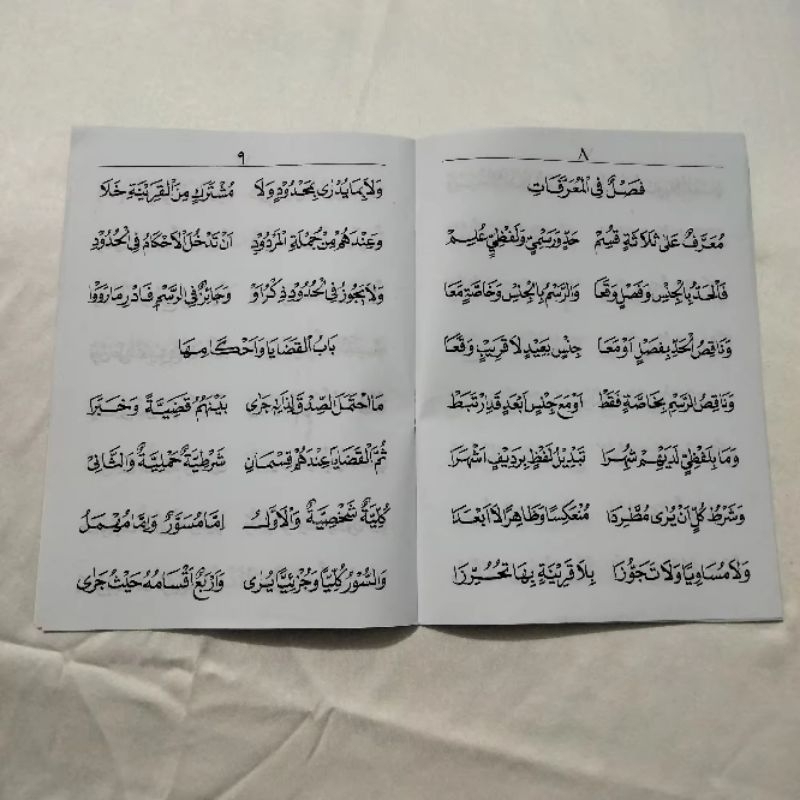 ٨
فَصْلٌ فِي الْمُعَرِّفَاتِ
مُعَرِّفٌ عَلَى ثَلَاثَةٍ قُسِمْ حَدٌّ وَرَسْمِيٌّ وَلَفْظِيٌّ عُلِمْ
فَالْحَدُّ بِالْجِنْسِ وَفَصْلٍ وَقَعَا وَالرَّسْمُ بِالْجِنْسِ وَخَاصَّةٍ مَعَا
وَنَاقِصُ الْحَدِّ بِفَصْلٍ اَوْ مَعَا جِنْسٍ بَعِيْدٍ لَا قَرِيْبٍ وَقَعَا
وَنَاقِصُ الرَّسْمِ بِخَاصَّةٍ فَقَطْ اَوْ مَعَ جِنْسٍ اَبْعَدٍ قَدِ ارْتَبَطْ
وَمَا بِلَفْظِيٍّ لَدَيْهِمْ شُهِرَا تَبْدِيْلُ لَفْظٍ بِرَدِيْفٍ اَشْهَرَا
وَشَرْطُ كُلٍّ اَنْ يُرٰى مُطَّرِدَا مُنْعَكِسًا وَظَاهِرًا لَا اَبْعَدَا
وَلَا مُسَاوِيًا وَلَا تَجَوُّزَا بِلَا قَرِيْنَةٍ بِهَا تُحُرِّزَا
٩
وَلَا بِمَا يُدْرٰى بِمَحْدُوْدٍ وَلَا مُشْتَرَكٍ مِنَ الْقَرِيْنَةِ خَلَا
وَعِنْدَهُمْ مِنْ جُمْلَةِ الْمَرْدُوْدِ اَنْ تَدْخُلَ الْاَحْكَامُ فِي الْحُدُوْدِ
وَلَا يَجُوْزُ فِي الْحُدُوْدِ ذِكْرُ اَوْ وَجَائِزٌ فِي الرَّسْمِ فَادْرِ مَا رَوَوْا
بَابُ الْقَضَايَا وَاَحْكَامِهَا
مَا احْتَمَلَ الصِّدْقَ لِذَاتِهِ جَرٰى بَيْنَهُمُ قَضِيَّةً وَخَبَرَا
ثُمَّ الْقَضَايَا عِنْدَهُمْ قِسْمَانِ شَرْطِيَّةٌ حَمْلِيَّةٌ وَالثَّانِي
كُلِّيَّةٌ شَخْصِيَّةٌ وَالْاَوَّلُ اِمَّا مُسَوَّرٌ وَاِمَّا مُهْمَلُ
وَالسُّوْرُ كُلِّيًّا وَجُزْئِيًّا يُرٰى وَاَرْبَعٌ اَقْسَامُهُ حَيْثُ جَرٰى